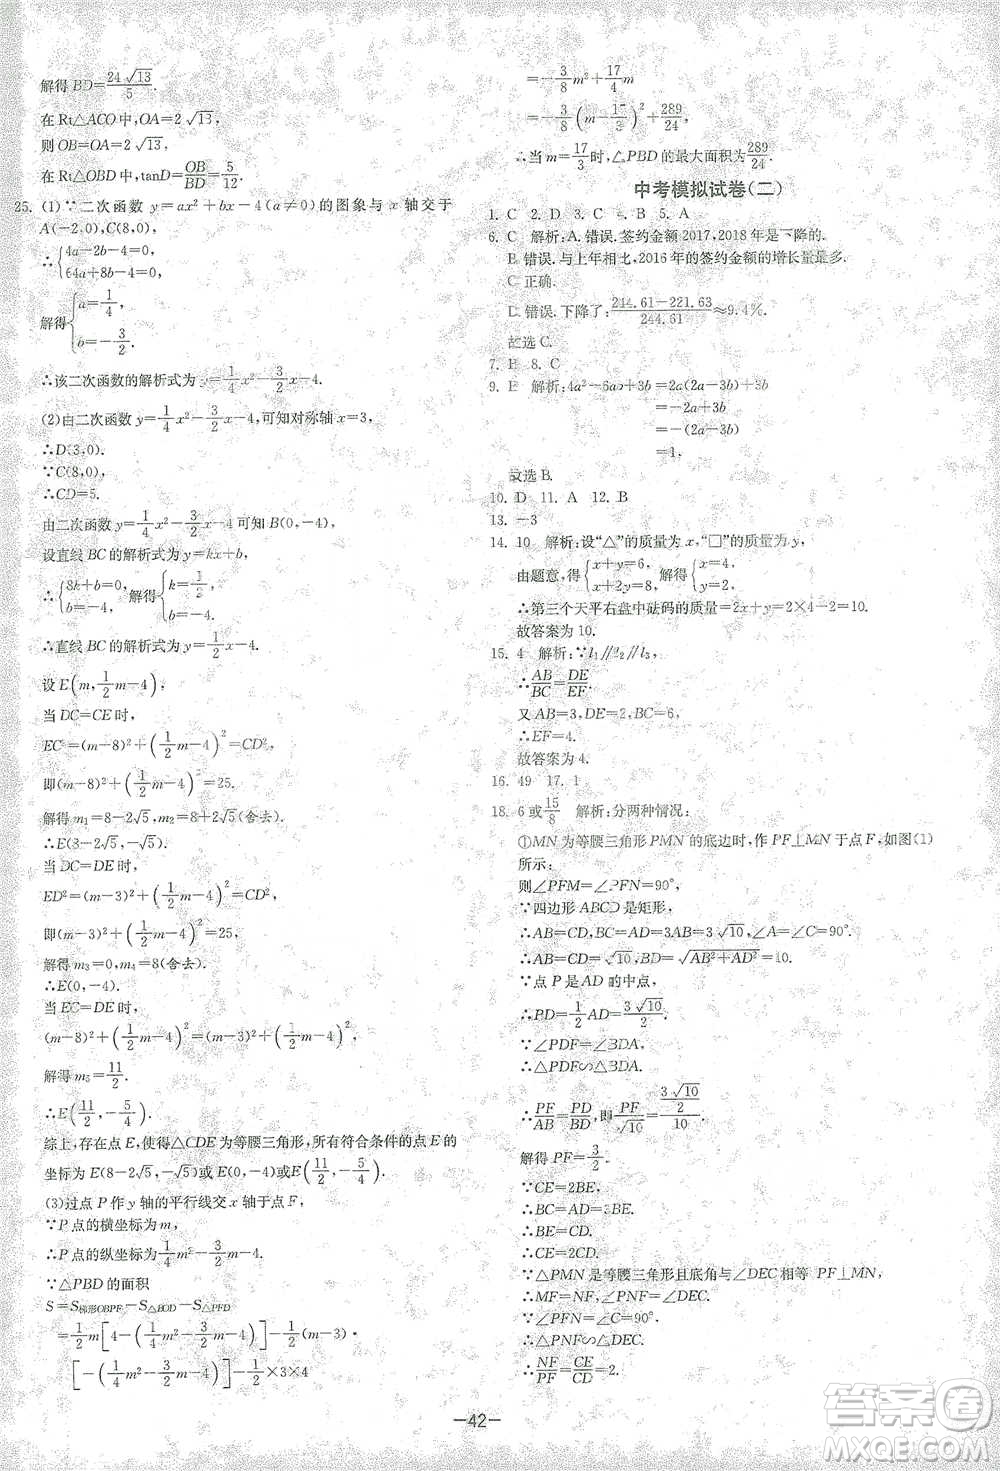 解得 BD=24√13/5.
在 Rt△ACO 中,OA=2√13,
则 OB=OA=2√13,
在 Rt△OBD 中,tanD=OB/BD=5/12.
25. (1)∵二次函数 y=ax²+bx-4(a≠0)的图象与 x 轴交于
A(-2,0),C(8,0),
∴{4a-2b-4=0,
64a+8b-4=0,
解得{a=1/4,
b=-3/2.
∴该二次函数的解析式为 y=1/4x²-3/2x-4.
(2)由二次函数 y=1/4x²-3/2x-4,可知对称轴 x=3,
∴D(3,0).
∵C(8,0),
∴CD=5.
由二次函数 y=1/4x²-3/2x-4 可知 B(0,-4),
设直线 BC 的解析式为 y=kx+b,
∴{8k+b=0, b=-4, 解得{k=1/2, b=-4.
∴直线 BC 的解析式为 y=1/2x-4.
设 E(m,1/2m-4),
当 DC=CE 时,
EC²=(m-8)²+(1/2m-4)²=CD²,
即(m-8)²+(1/2m-4)²=25.
解得 m₁=8-2√5,m₂=8+2√5(舍去).
∴E(8-2√5,-√5).
当 DC=DE 时,
ED²=(m-3)²+(1/2m-4)²=CD²,
即(m-3)²+(1/2m-4)²=25,
解得 m₃=0,m₄=8(舍去).
∴E(0,-4).
当 EC=DE 时,
(m-8)²+(1/2m-4)²=(m-3)²+(1/2m-4)²,
解得 m₅=11/2.
∴E(11/2,-5/4).
综上,存在点 E,使得△CDE 为等腰三角形,所有符合条件的点 E 的
坐标为 E(8-2√5,-√5)或 E(0,-4)或 E(11/2,-5/4).
(3)过点 P 作 y 轴的平行线交 x 轴于点 F,
∵P 点的横坐标为 m,
∴P 点的纵坐标为1/4m²-3/2m-4.
∵△PBD 的面积
S=S梯形OBPF-S△BOD-S△PFD
=1/2m[4-(1/4m²-3/2m-4)]-1/2(m-3)·
[-(1/4m²-3/2m-4)]-1/2×3×4
=-3/8m²+17/4m
=-3/8(m-17/3)²+289/24
∴当 m=17/3时,△PBD 的最大面积为289/24.
中考模拟试卷(二)
1. C 2. D 3. C 4. B 5. A
6. C 解析:A. 错误. 签约金额 2017,2018 年是下降的.
B. 错误. 与上年相比,2016 年的签约金额的增长量最多.
C. 正确.
D. 错误. 下降了:(244.61-221.63)/244.61≈9.4%.
故选 C.
7. B 8. C
9. B 解析:4a²-6ab+3b=2a(2a-3b)+3b
=-2a+3b
=-(2a-3b)
=1.
故选 B.
10. D 11. A 12. B
13. -3
14. 10 解析:设“△”的质量为 x,“□”的质量为 y,
由题意,得{x+y=6, x+2y=8, 解得{x=4, y=2.
∴第三个天平右盘中砝码的质量=2x+y=2×4+2=10.
故答案为 10.
15. 4 解析:∵l₁∥l₂∥l₃,
∴AB/BC=DE/EF.
又 AB=3,DE=2,BC=6,
∴EF=4.
故答案为 4.
16. 49 17. 1
18. 6 或15/8 解析:分两种情况:
①MN 为等腰三角形 PMN 的底边时,作 PF⊥MN 于点 F,如图(1)
所示:
则∠PFM=∠PFN=90°,
∵四边形 ABCD 是矩形,
∴AB=CD,BC=AD=3AB=3√10,∠A=∠C=90°.
∴AB=CD=√10,BD=√(AB²+AD²)=10.
∵点 P 是 AD 的中点,
∴PD=1/2AD=3√10/2.
∵∠PDF=∠BDA.
∴△PDF∽△BDA.
∴PF/AB=PD/BD,即PF/√10=(3√10/2)/10
解得 PF=3/2.
∵CE=2BE.
∴BC=AD=3BE.
∴BE=CD.
∴CE=2CD.
∵△PMN 是等腰三角形且底角与∠DEC 相等 PF⊥MN,
∴MF=NF,∠PNF=∠DEC.
∵∠PFN=∠C=90°.
∴△PNF∽△DEC.
∴NF/PF=CE/CD=2.
—42—
答案圈
MXQE.COM